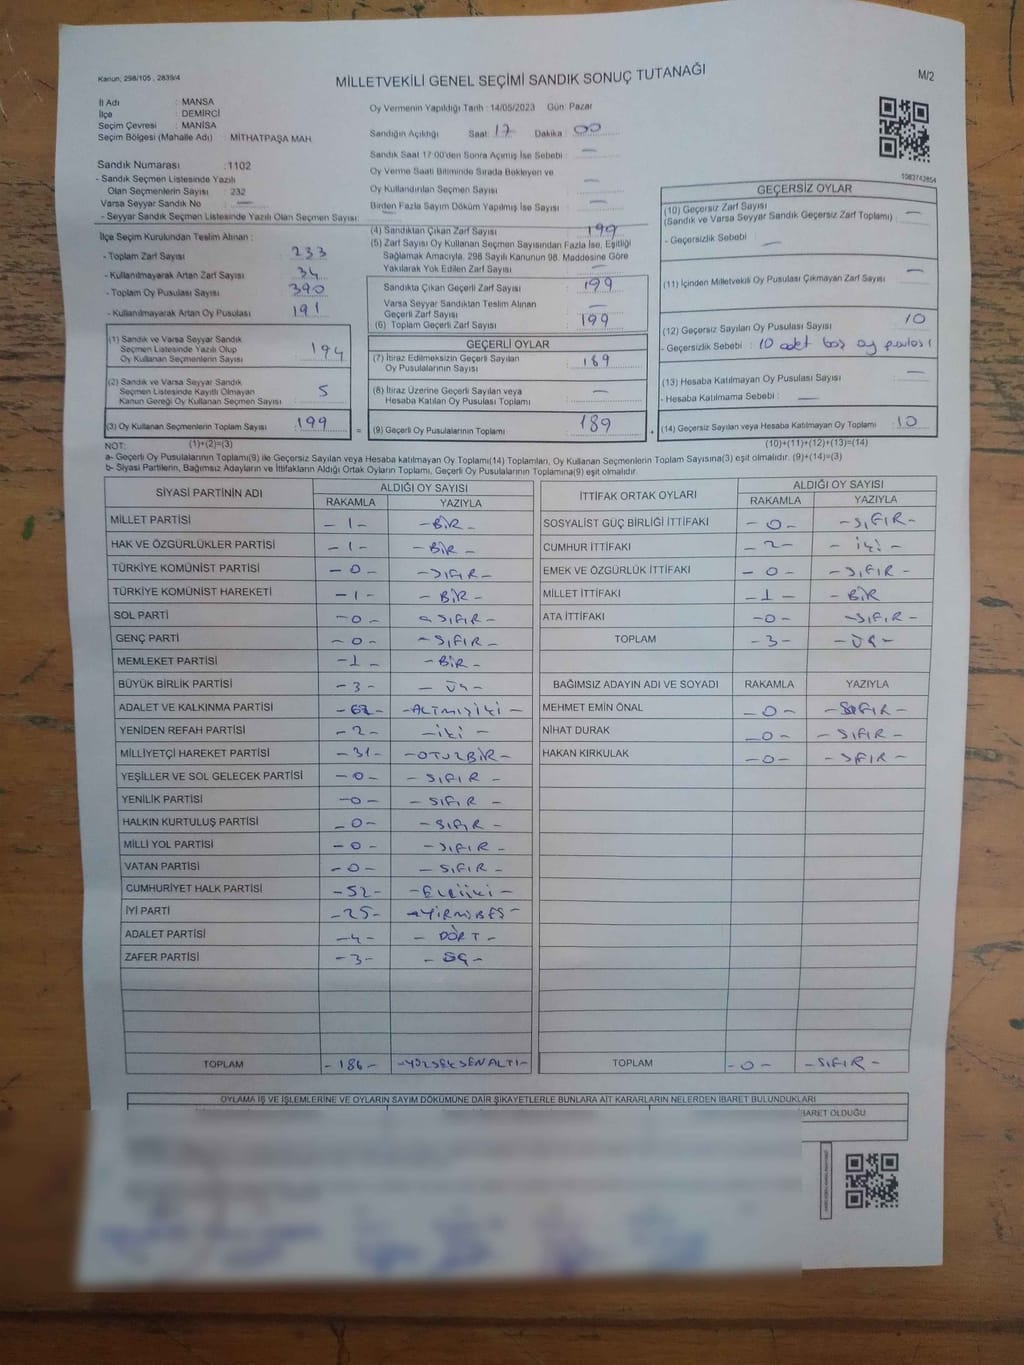 Kanun, 298/105 , 2839/4
MİLLETVEKİLİ GENEL SEÇİMİ SANDIK SONUÇ TUTANAĞI
M/2
İl Adı : MANİSA
İlçe : DEMİRCİ
Seçim Çevresi : MANİSA
Seçim Bölgesi (Mahalle Adı) : MİTHATPAŞA MAH.
Sandık Numarası : 1102
- Sandık Seçmen Listesinde Yazılı
Olan Seçmenlerin Sayısı : 232
Varsa Seyyar Sandık No : —
- Seyyar Sandık Seçmen Listesinde Yazılı Olan Seçmen Sayısı:
Oy Vermenin Yapıldığı Tarih : 14/05/2023 Gün: Pazar
Sandığın Açıldığı Saat: 17 Dakika : 00
Sandık Saat 17:00'den Sonra Açılmış İse Sebebi : —
Oy Verme Saati Bitiminde Sırada Bekleyen ve
Oy Kullandırılan Seçmen Sayısı : —
Birden Fazla Sayım Döküm Yapılmış İse Sayısı : —
1083742854
İlçe Seçim Kurulundan Teslim Alınan :
- Toplam Zarf Sayısı : 233
- Kullanılmayarak Artan Zarf Sayısı : 34
- Toplam Oy Pusulası Sayısı : 390
- Kullanılmayarak Artan Oy Pusulası : 191
(1) Sandık ve Varsa Seyyar Sandık
Seçmen Listesinde Yazılı Olup
Oy Kullanan Seçmenlerin Sayısı : 194
(2) Sandık ve Varsa Seyyar Sandık
Seçmen Listesinde Kayıtlı Olmayan
Kanun Gereği Oy Kullanan Seçmen Sayısı : 5
(3) Oy Kullanan Seçmenlerin Toplam Sayısı : 199 =
(4) Sandıktan Çıkan Zarf Sayısı : 199
(5) Zarf Sayısı Oy Kullanan Seçmen Sayısından Fazla İse, Eşitliği
Sağlamak Amacıyla, 298 Sayılı Kanunun 98. Maddesine Göre
Yakılarak Yok Edilen Zarf Sayısı : —
Sandıkta Çıkan Geçerli Zarf Sayısı : 199
Varsa Seyyar Sandıktan Teslim Alınan
Geçerli Zarf Sayısı : —
(6) Toplam Geçerli Zarf Sayısı : 199
GEÇERLİ OYLAR
(7) İtiraz Edilmeksizin Geçerli Sayılan
Oy Pusulalarının Sayısı : 189
(8) İtiraz Üzerine Geçerli Sayılan veya
Hesaba Katılan Oy Pusulası Toplamı : —
(9) Geçerli Oy Pusulalarının Toplamı : 189 +
GEÇERSİZ OYLAR
(10) Geçersiz Zarf Sayısı
(Sandık ve Varsa Seyyar Sandık Geçersiz Zarf Toplamı) : —
- Geçersizlik Sebebi : —
(11) İçinden Milletvekili Oy Pusulası Çıkmayan Zarf Sayısı : —
(12) Geçersiz Sayılan Oy Pusulası Sayısı : 10
- Geçersizlik Sebebi : 10 adet boş oy pusulası
(13) Hesaba Katılmayan Oy Pusulası Sayısı : —
- Hesaba Katılmama Sebebi : —
(14) Geçersiz Sayılan veya Hesaba Katılmayan Oy Toplamı : 10
NOT: (1)+(2)=(3) (10)+(11)+(12)+(13)=(14)
a- Geçerli Oy Pusulalarının Toplamı(9) ile Geçersiz Sayılan veya Hesaba katılmayan Oy Toplamı(14) Toplamları, Oy Kullanan Seçmenlerin Toplam Sayısına(3) eşit olmalıdır. (9)+(14)=(3)
b- Siyasi Partilerin, Bağımsız Adayların ve İttifakların Aldığı Ortak Oyların Toplamı, Geçerli Oy Pusulalarının Toplamına(9) eşit olmalıdır.
SİYASİ PARTİNİN ADI ALDIĞI OY SAYISI
RAKAMLA YAZIYLA
MİLLET PARTİSİ - 1 - - BİR -
HAK VE ÖZGÜRLÜKLER PARTİSİ - 1 - - BİR -
TÜRKİYE KOMÜNİST PARTİSİ - 0 - - SIFIR -
TÜRKİYE KOMÜNİST HAREKETİ - 1 - - BİR -
SOL PARTİ - 0 - - SIFIR -
GENÇ PARTİ - 0 - - SIFIR -
MEMLEKET PARTİSİ - 1 - - BİR -
BÜYÜK BİRLİK PARTİSİ - 3 - - ÜÇ -
ADALET VE KALKINMA PARTİSİ - 62 - - ALTMIŞİKİ -
YENİDEN REFAH PARTİSİ - 2 - - İKİ -
MİLLİYETÇİ HAREKET PARTİSİ - 31 - - OTUZBİR -
YEŞİLLER VE SOL GELECEK PARTİSİ - 0 - - SIFIR -
YENİLİK PARTİSİ - 0 - - SIFIR -
HALKIN KURTULUŞ PARTİSİ - 0 - - SIFIR -
MİLLİ YOL PARTİSİ - 0 - - SIFIR -
VATAN PARTİSİ - 0 - - SIFIR -
CUMHURİYET HALK PARTİSİ - 52 - - ELLİİKİ -
İYİ PARTİ - 25 - - YİRMİBEŞ -
ADALET PARTİSİ - 4 - - DÖRT -
ZAFER PARTİSİ - 3 - - ÜÇ -
TOPLAM - 186 - - YÜZSEKSENALTI -
İTTİFAK ORTAK OYLARI ALDIĞI OY SAYISI
RAKAMLA YAZIYLA
SOSYALİST GÜÇ BİRLİĞİ İTTİFAKI - 0 - - SIFIR -
CUMHUR İTTİFAKI - 2 - - İKİ -
EMEK VE ÖZGÜRLÜK İTTİFAKI - 0 - - SIFIR -
MİLLET İTTİFAKI - 1 - - BİR -
ATA İTTİFAKI - 0 - - SIFIR -
TOPLAM - 3 - - ÜÇ -
BAĞIMSIZ ADAYIN ADI VE SOYADI RAKAMLA YAZIYLA
MEHMET EMİN ÖNAL - 0 - - SIFIR -
NİHAT DURAK - 0 - - SIFIR -
HAKAN KIRKULAK - 0 - - SIFIR -
TOPLAM - 0 - - SIFIR -
OYLAMA İŞ VE İŞLEMLERİNE VE OYLARIN SAYIM DÖKÜMÜNE DAİR ŞİKAYETLERLE BUNLARA AİT KARARLARIN NELERDEN İBARET BULUNDUKLARI
İBARET OLDUĞU